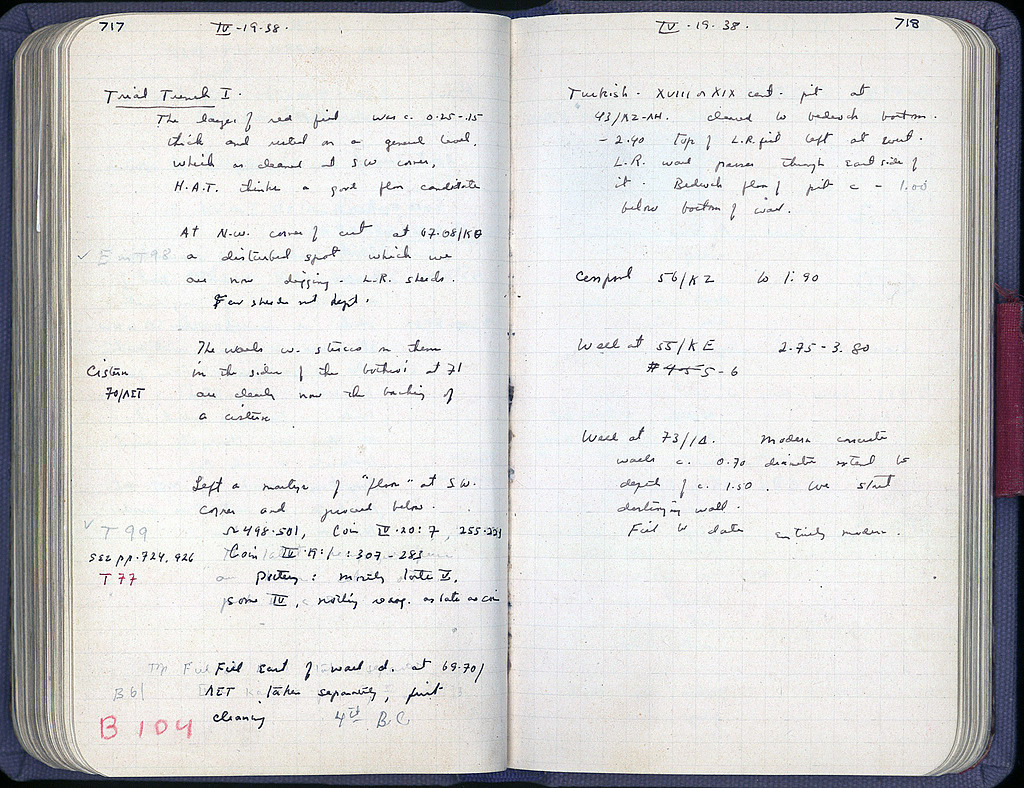 717
IV-19-38.
Trial Trench I.
The layer of red fill was c. 0.25-.15
thick and rested on a general level,
which as cleaned at SW corner,
H.A.T. thinks a good floor candidate
At N.W. corner of cut at 67-08/KΘ
✓ E in T98 a disturbed spot which we
are now digging - L.R. sherds.
Few sherds not kept.
The walls w. stucco on them
in the sides of the bothroi at 71
Cistern
70/ΛΣΤ
are clearly now the backing of
a cistern
Left a martyr of "floor" at S.W.
corner and proceed below.
✓ T 99
N 498-501, Coin IV-20:7, 255-221
see pp. 724, 926
Coin IV-19: : 307-283
T 77
Pottery: mostly late V,
some IV, nothing as late as coin
Fill East of wall at 69-70/
B 61
ΛΣΤ taken separately, first
B 104
cleaning 4th B.C.
718
IV-19-38.
Turkish - XVIII or XIX cent. pit at
43/ΚΖ-ΛΗ. cleared to bedrock bottom.
-2.40 Top of L.R. fill left at east.
L.R. wall passes through East side of
it. Bedrock floor of pit c - 1.00
below bottom of wall.
Cesspool 56/ΚΖ to 1.90
Well at 55/ΚΕ 2.75-3.80
# 455-6
Well at 73/ΙΔ. Modern concrete
walls c. 0.70 diameter extend to
depth of c. 1.50. We start
destroying wall.
Fill to date entirely modern.